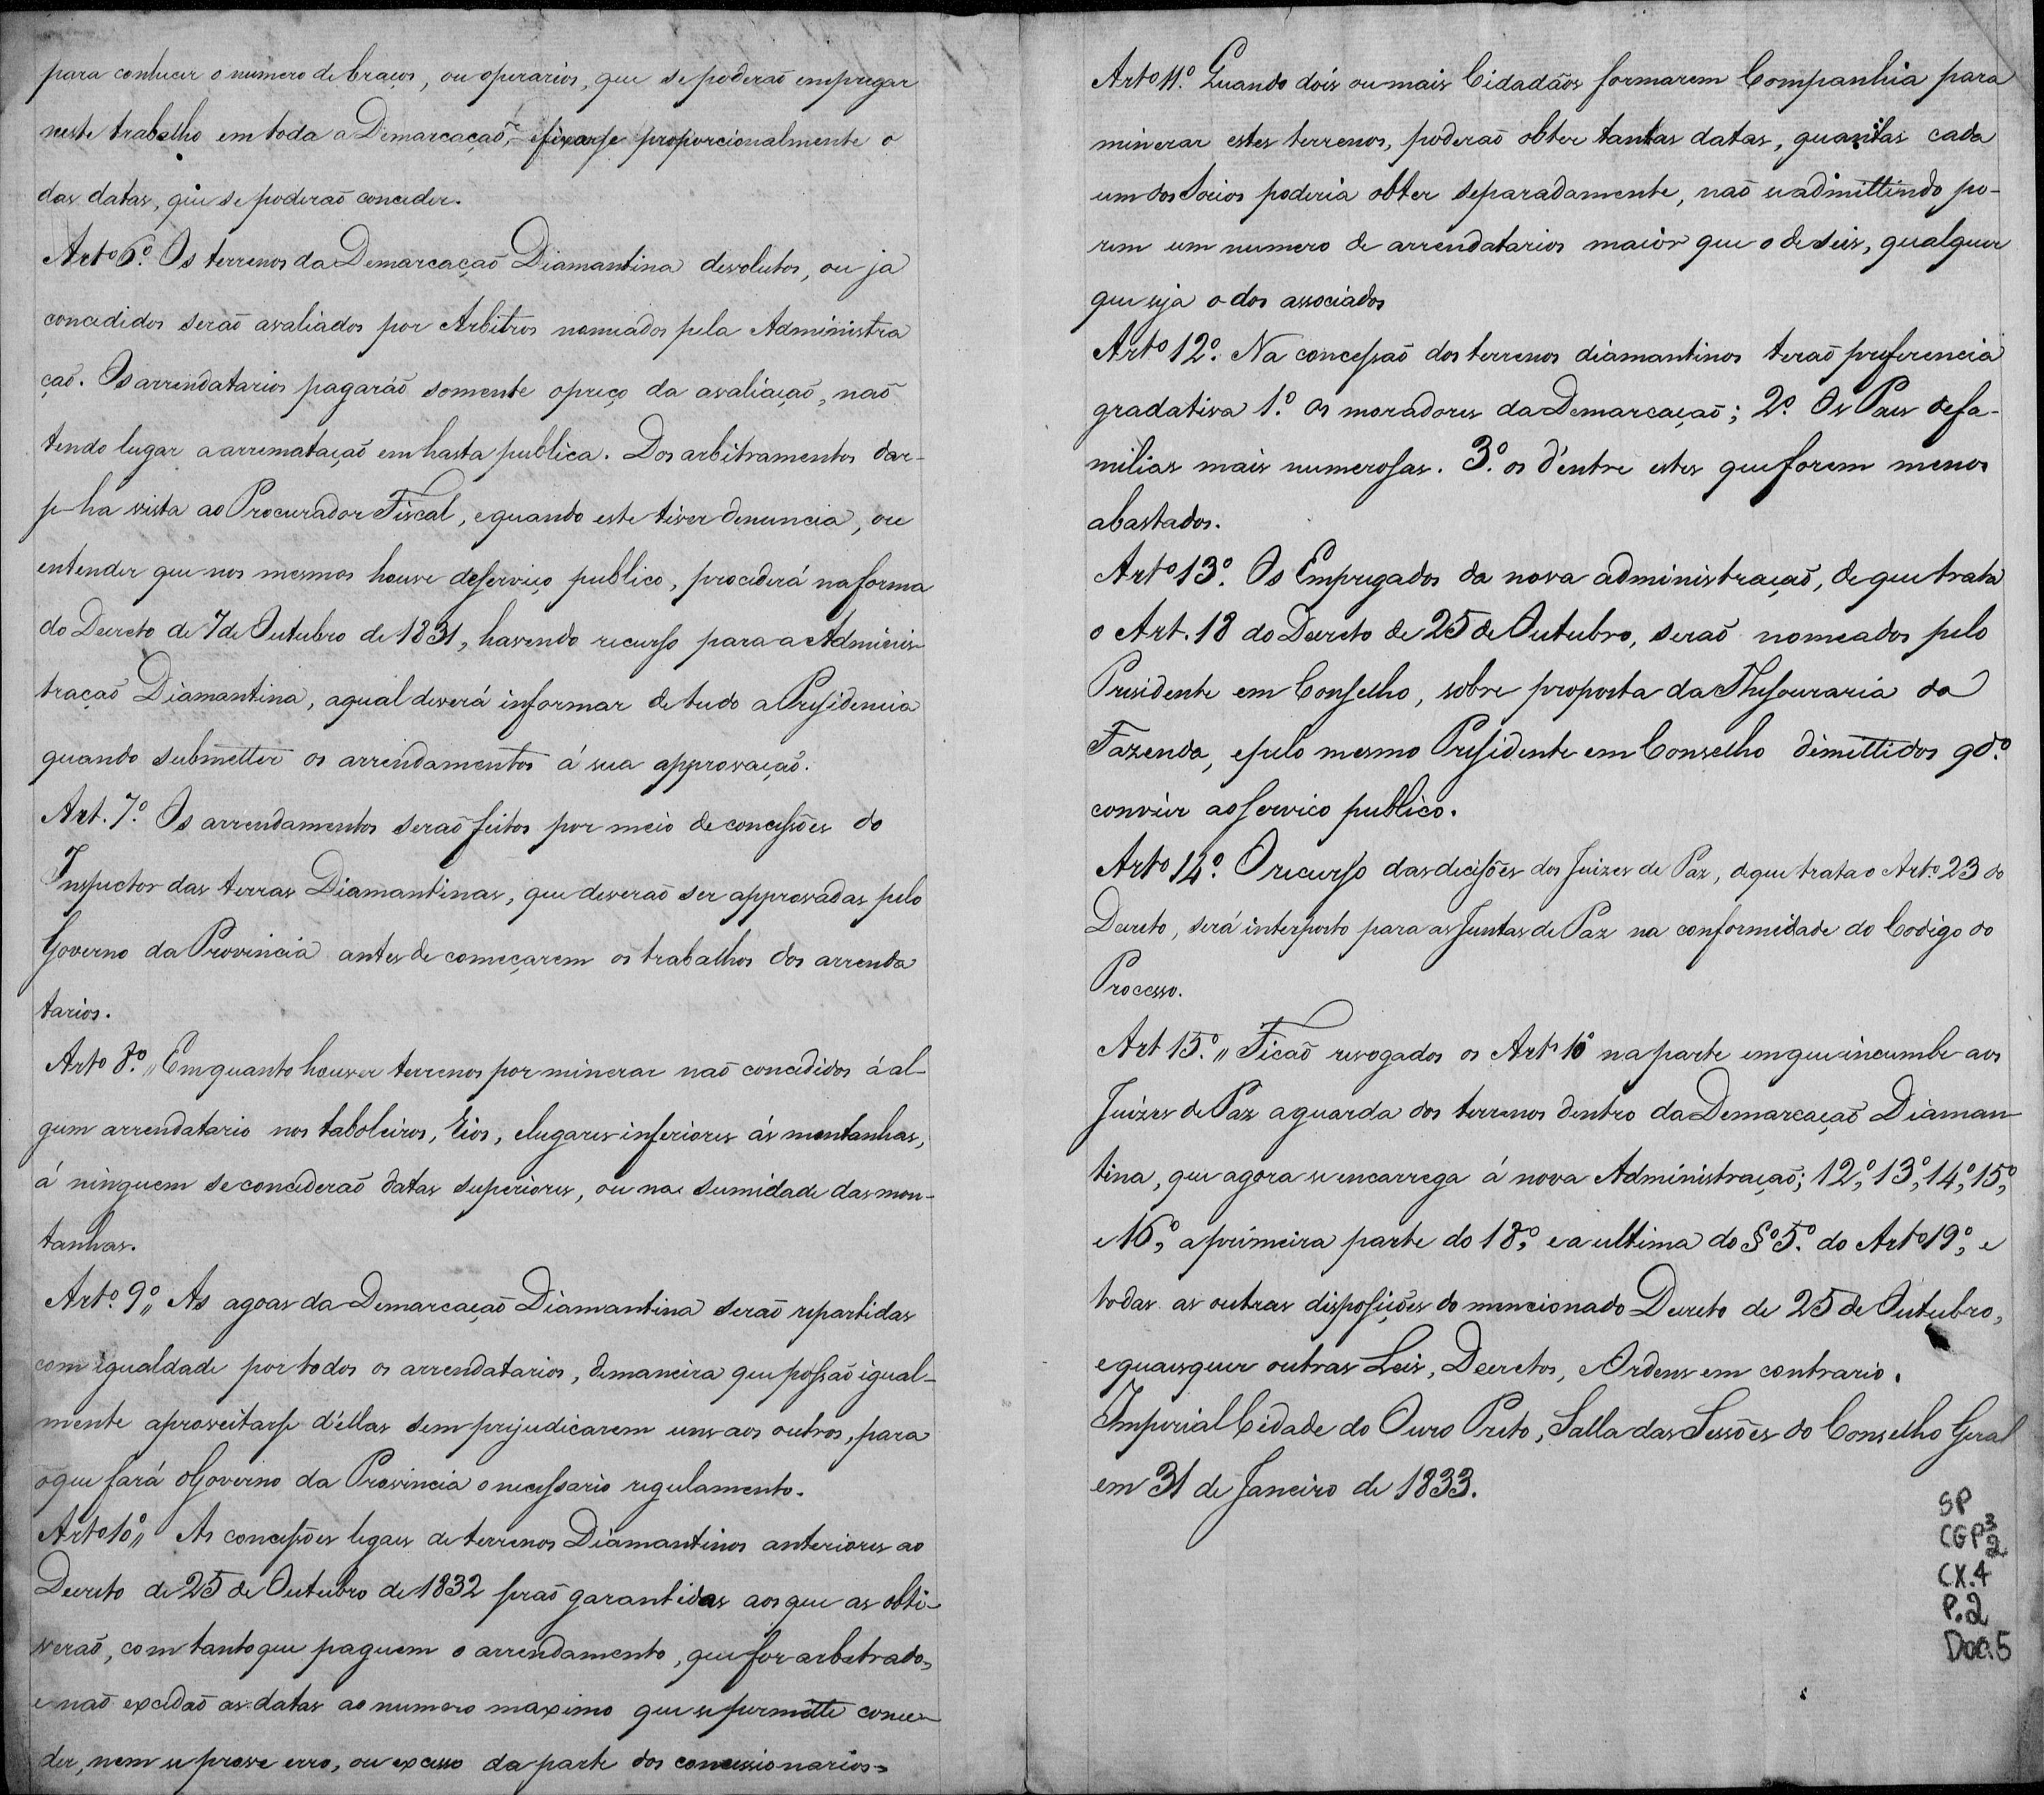 para conhecer o numero de braços, ou operarios, que se poderaõ empregar
neste trabalho em toda a Demarcaçaõ, e fixarse proporcionalmente o
das datas, que se poderaõ conceder.
Artº 6º. Os terrenos da Demarcaçaõ Diamantina devolutos, ou ja
concedidos seraõ avaliados por Arbitros nomeados pela Administra
çaõ. Os arrendatarios pagaráõ somente o preço da avaliaçaõ, naõ
tendo lugar a arremataçaõ em hasta publica. Dos arbitramentos dar-
se-ha vista ao Procurador Fiscal, e quando este tiver denuncia, ou
entender que nos mesmos houve desserviço publico, procederá na forma
do Decreto de 7 de Outubro de 1831, havendo recurso para a Adminis-
traçaõ Diamantina, a qual deverá informar de tudo a Presidencia
quando submetter os arrendamentos á sua approvaçaõ.
Art. 7º. Os arrendamentos seraõ feitos por meio de concessões do
Inspector das terras Diamantinas, que deveraõ ser approvadas pelo
Governo da Provincia antes de começarem os trabalhos dos arrenda
tarios.
Artº 8º. „ Emquanto houver terrenos por minerar naõ concedidos á al-
gum arrendatario nos taboleiros, Rios, e lugares inferiores ás montanhas,
á ninguem se concederaõ datas superiores, ou nas sumidade das mon-
tanhas.
Artº. 9º „ As agoas da Demarcaçaõ Diamantina seraõ repartidas
com igualdade por todos os arrendatarios, de maneira que possaõ igual-
mente aproveitarse d'ellas sem prejudicarem uns aos outros, para
o que fará o Governo da Provincia o necessario regulamento.
Artº 10º „ As concessões legaes de terrenos Diamantinos anteriores ao
Decreto de 25 de Outubro de 1832 seraõ garantidas aos que as obti-
veraõ, com tanto que paguem o arrendamento, que for arbetrado,
e naõ excedaõ as datas ao numero maximo que se permitte conce-
der, nem se prove erro, ou excesso da parte dos concessionarios.
Artº 11º. Quando dois ou mais Cidadãos formarem Companhia para
minerar estes terrenos, poderaõ obter tantas datas, quantas cada
um dos Socios poderia obter separadamente, naõ se admittindo po-
rem um numero de arrendatarios maior que o de seis, qualquer
que seja o dos associados
Artº 12º. Na concessaõ dos terrenos diamantinos teraõ preferencia
gradativa 1º. os moradores da Demarcaçaõ; 2º. Os Paes de fa-
milias mais numerosas. 3º. os d'entre estes que forem menos
abastados.
Artº 13º. Os Empregados da nova administraçaõ, de que trata
o Art. 18 do Decreto de 25 de Outubro, seraõ nomeados pelo
Presidente em Conselho, sobre proposta da Thesouraria da
Fazenda, e pelo mesmo Presidente em Conselho dimittidos qdº.
convier ao serviço publico.
Artº 14º. O recurso das decisões dos Juizes de Paz, de que trata o Artº. 23 do
Decreto, será interposto para as Juntas de Paz na conformidade do Codigo do
Processo.
Art 15º. „ Ficaõ revogados os Artˢ 10º na parte em que incumbe aos
Juizes de Paz a guarda dos terrenos dentro da Demarcaçaõ Diaman-
tina, que agora se encarrega á nova Administraçaõ; 12º, 13º, 14º, 15º,
e 16º, a primeira parte do 18º, e a ultima do §º 5º. do Artº 19º, e
todas as outras disposições do mencionado Decreto de 25 de Outubro,
e quaisquer outras Leis, Decretos, e Ordens em contrario.
Imperial Cidade do Ouro Preto, Salla das Sessões do Conselho Geral
em 31 de Janeiro de 1833.
SP
CGP³2
CX.4
P.2
Doc.5